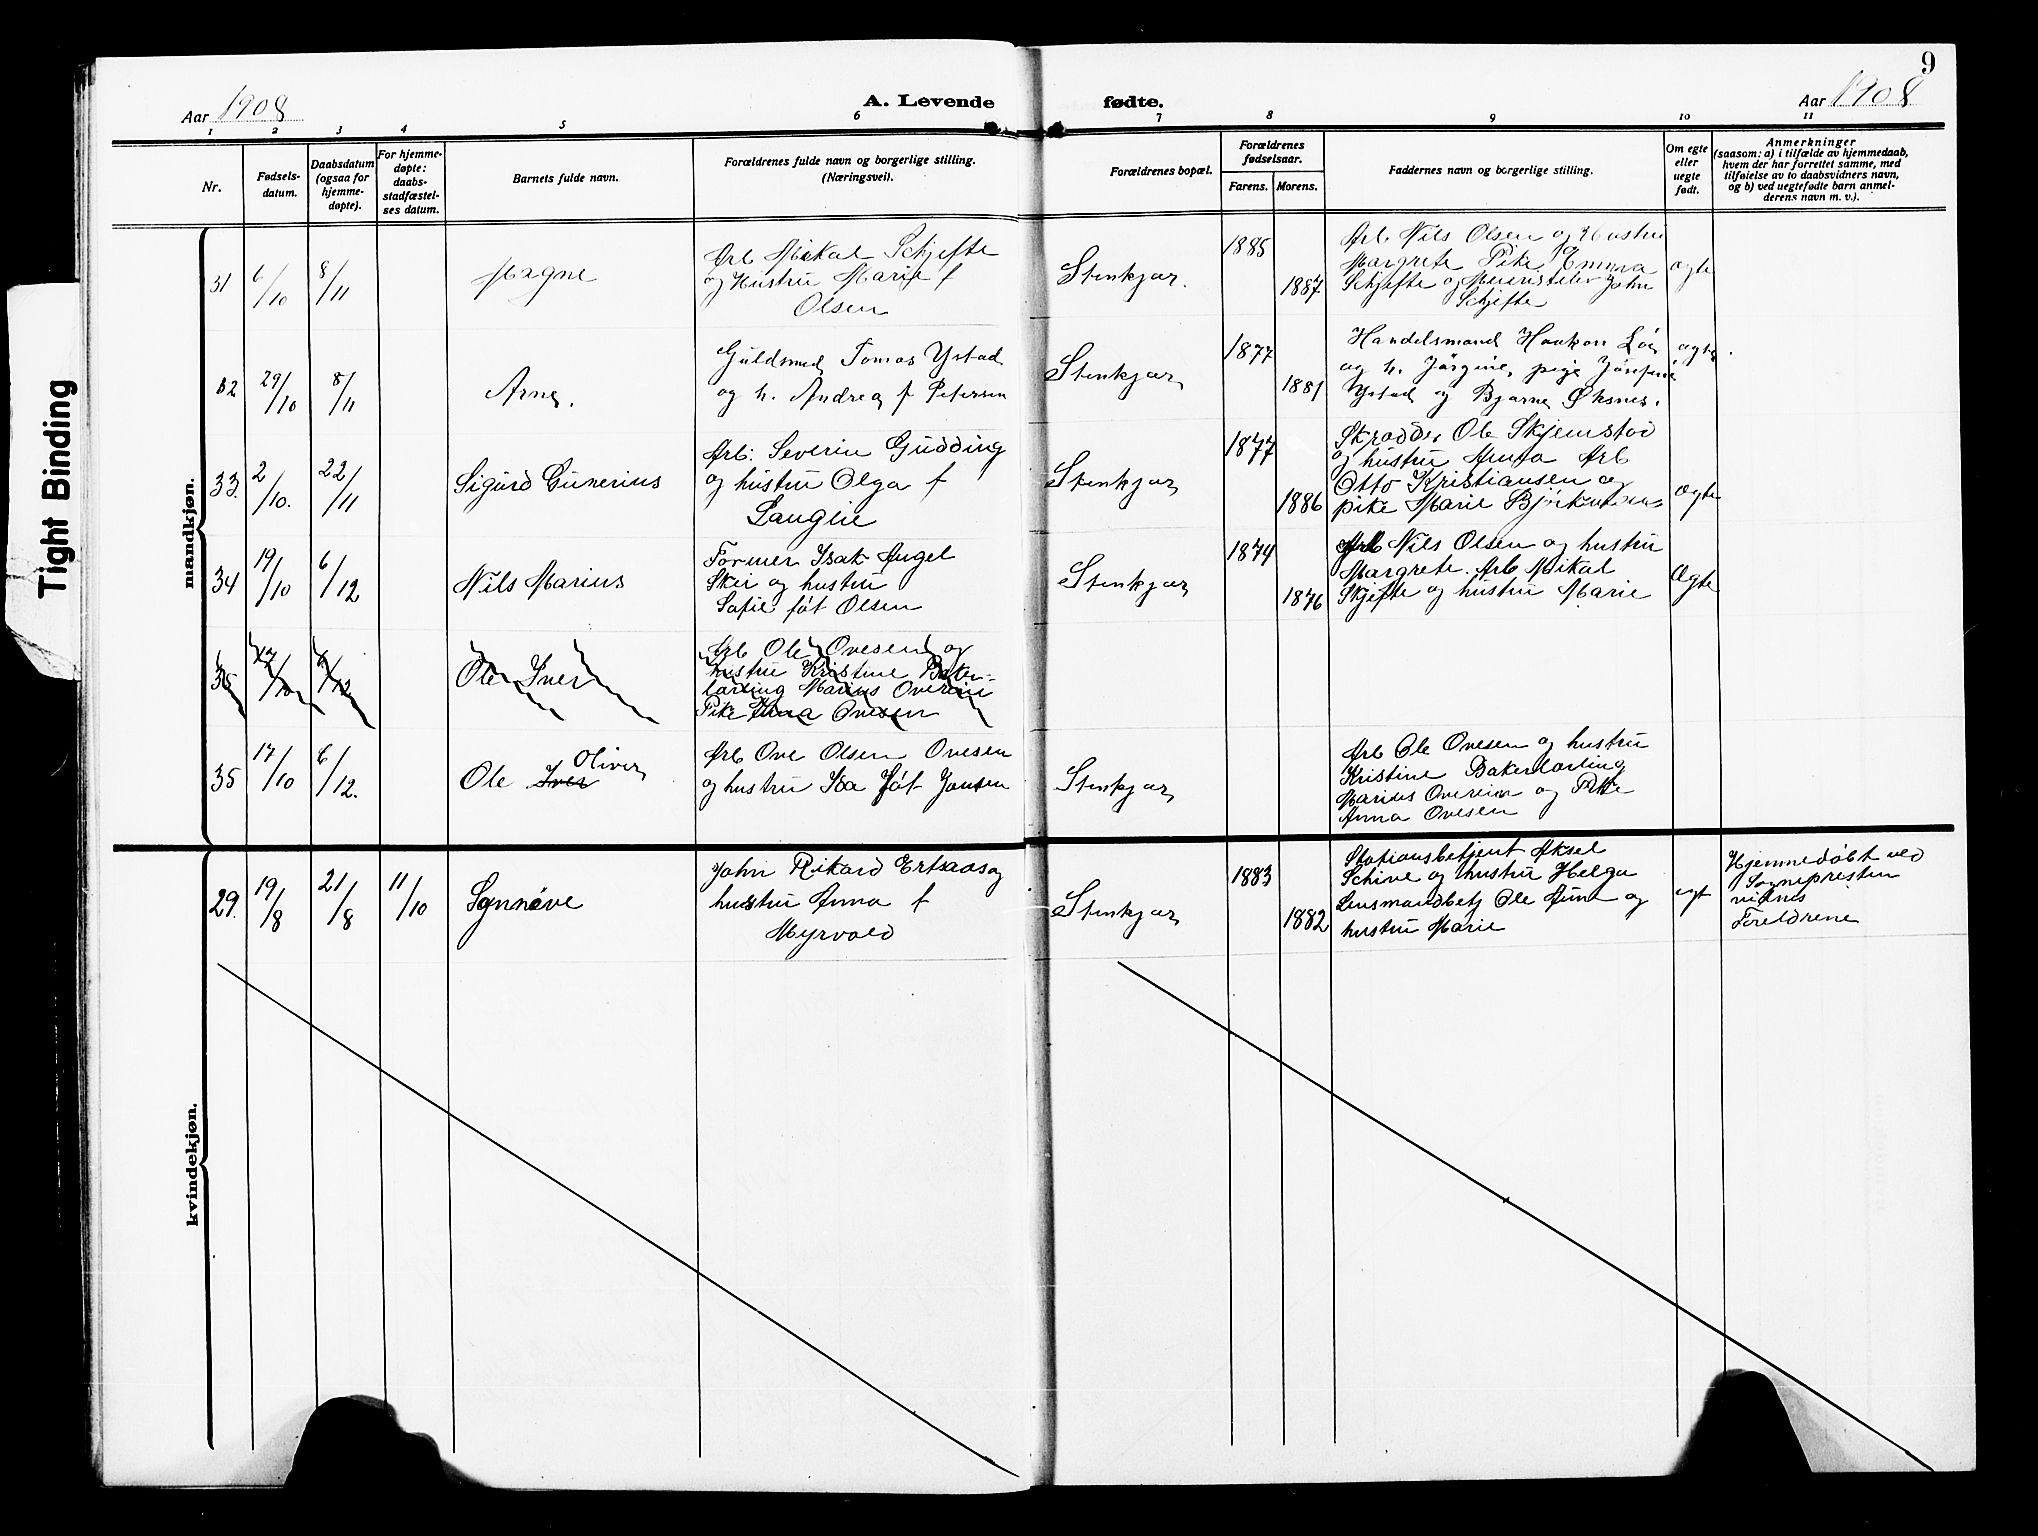 9
Aar 1908
A. Levende fødte.
Aar 1908
1 2 3 4 5 6 7 8 9 10 11
Nr.
Fødsels-
datum.
Daabsdatum
(ogsaa for
hjemme-
døpte).
For hjemme-
døpte:
daabs-
stadfæstel-
ses datum.
Barnets fulde navn.
Forældrenes fulde navn og borgerlige stilling.
(Næringsvei).
Forældrenes bopæl.
Forældrenes
fødselsaar.
Farens. Morens.
Faddernes navn og borgerlige stilling.
Om egte
eller
uegte
født.
Anmerkninger
(saasom: a) i tilfælde av hjemmedaab,
hvem der har forrettet samme, med
tilføielse av to daabsvidners navn,
og b) ved uegtefødte barn anmel-
derens navn m. v.).
Tight Binding
mandkjøn.
31 6/10 8/11
Magne
Arb Mikal Schjefte
og Hustru Marie f
Olsen
Stenkjær.
1885
1887
Arb Nils Olsen og Hustru
Margrete Pike Emma
Schjefte og John
Schjefte
ægte
32 29/10 8/11
Arne.
Guldsmed Tomas Ystad
og h. Andrea f Petersen
Stenkjær
1877
1881
Handelsmand Haakon
og h. Jørgine, pige Josefine
Ystad og Bjarne Øksnes.
ægte.
33. 2/10. 22/11
Sigurd Gunerius
Arb: Severin Gudding
og hustru Olga f
Langlie
Stenkjær
1877
1886
Skrædder Ole Skjemstad
og hustru Anna Arb
Otto Kristiansen og
pike Marie
ægte
34 19/10 6/12
Nils Marius
Former Isak Angel
Skei og hustru
Sofie føt Olsen
Stenkjær
1874
1876
Arb Nils Olsen og hustru
Margrete. Arb Mikal
Skjefte og hustru Marie
Ægte
35 17/10 6/12
Ole Iver
Arb Ole Ovesen og
hustru Kristine Baker-
lærling Marius Overein
Pike Anna Ovesen
35 17/10 6/12.
Oliver
Ole Iver
Arb Ove Olsen Ovesen
og hustru Isa føt Jansen
Stenkjær
Arb Ole Ovesen og hustru
Kristine Bakerlærling
Marius Overein og Pike
Anna Ovesen
kvindekjøn.
29. 19/8 21/8 11/10
Synnøve
John Rikard Ertsaas og
hustru Anna f
Myrvold
Stenkjær
1883
1882
Stationsbetjent Aksel
Schive og hustru Helga
Lensmandbetj Ole Aune og
hustru Marie
egt
Hjemmedøbt ved
Sognepresten
vidnes
Foreldrene